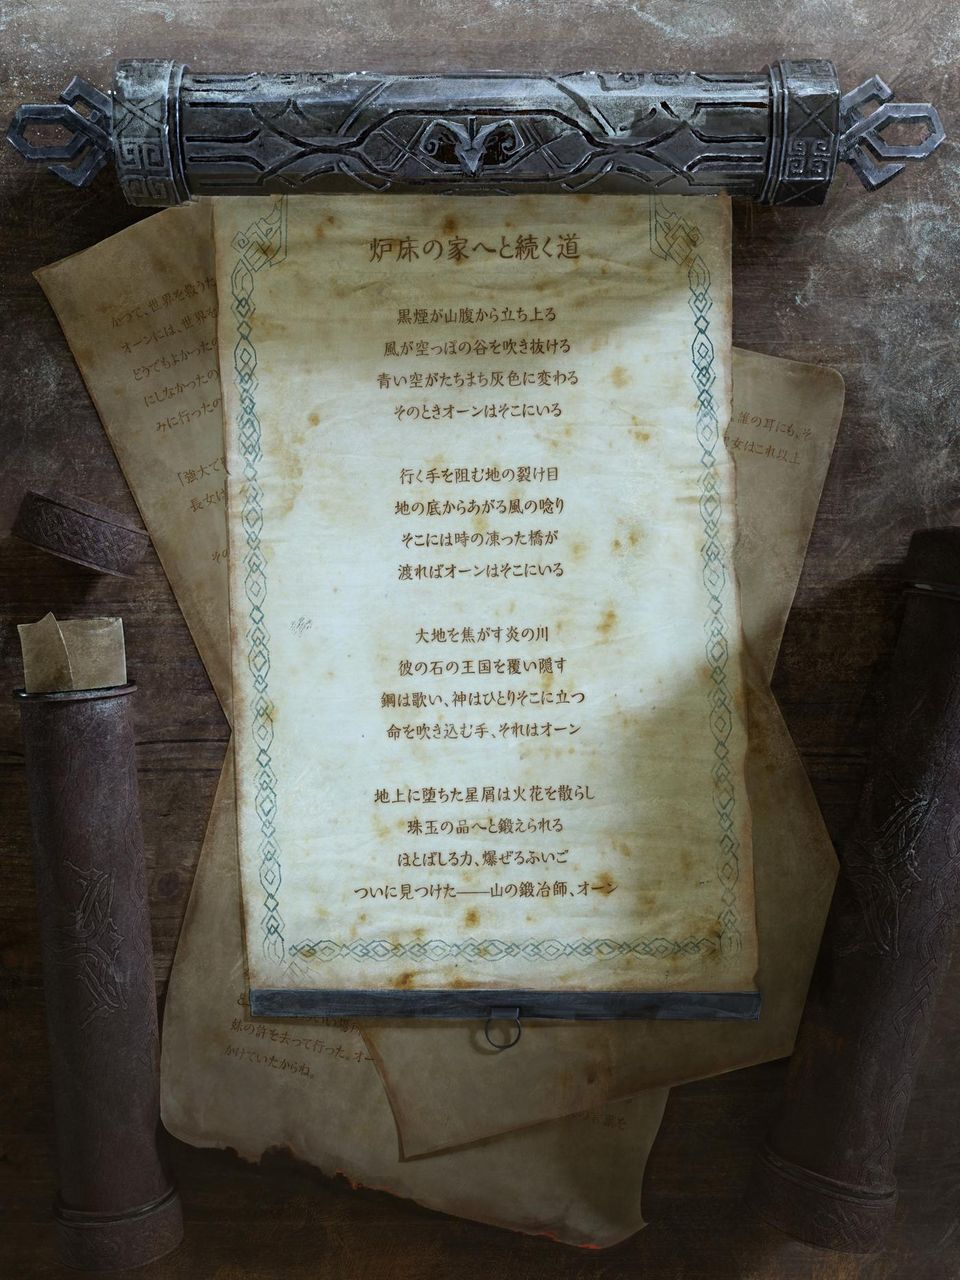 炉床の家へと続く道
黒煙が山腹から立ち上る
風が空っぽの谷を吹き抜ける
青い空がたちまち灰色に変わる
そのときオーンはそこにいる
行く手を阻む地の裂け目
地の底からあがる風の唸り
そこには時の凍った橋が
渡ればオーンはそこにいる
大地を焦がす炎の川
彼の石の王国を覆い隠す
鋼は歌い、神はひとりそこに立つ
命を吹き込む手、それはオーン
地上に堕ちた星屑は火花を散らし
珠玉の品へと鍛えられる
ほとばしる力、爆ぜるふいご
ついに見つけた——山の鍛冶師、オーン
かつて、世界を救った
オーンには、世界を
どうでもよかったの
にしなかったの
みに行ったの
「強大で
長女は
そ
、誰の耳にも、そ
女はこれ以上
妹の許を去って行った。オー
かけていたからね。